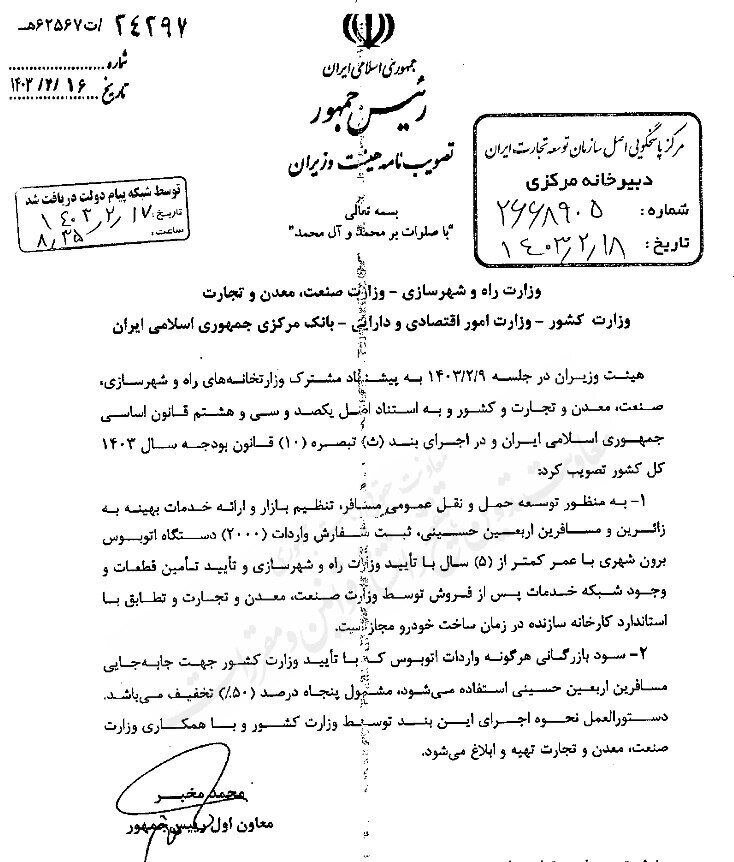 ۲۴۲۹۷ /ت۶۲۵۶۷هـ
شماره
تاریخ ۱۴۰۳/۲/۱۶
جمهوری اسلامی ایران
رئیس جمهور
تصویب نامه هیئت وزیران
بسمه تعالی
"با صلوات بر محمد و آل محمد"
مرکز پاسخگویی اصل سازمان توسعه تجارت ایران
دبیرخانه مرکزی
شماره: ۲۶۶۸۹۰۵
تاریخ: ۱۴۰۳/۲/۱۸
توسط شبکه پیام دولت دریافت شد
تاریخ: ۱۴۰۳/۲/۱۷
ساعت: ۸/۳۵
وزارت راه و شهرسازی – وزارت صنعت، معدن و تجارت
وزارت کشور – وزارت امور اقتصادی و دارایی – بانک مرکزی جمهوری اسلامی ایران
هیئت وزیران در جلسه ۱۴۰۳/۲/۹ به پیشنهاد مشترک وزارتخانه‌های راه و شهرسازی،
صنعت، معدن و تجارت و کشور و به استناد اصل یکصد و سی و هشتم قانون اساسی
جمهوری اسلامی ایران و در اجرای بند (ث) تبصره (۱۰) قانون بودجه سال ۱۴۰۳
کل کشور تصویب کرد:
۱- به منظور توسعه حمل و نقل عمومی مسافر، تنظیم بازار و ارائه خدمات بهینه به
زائرین و مسافرین اربعین حسینی، ثبت سفارش واردات (۲۰۰۰) دستگاه اتوبوس
برون شهری با عمر کمتر از (۵) سال با تأیید وزارت راه و شهرسازی و تأیید تأمین قطعات و
وجود شبکه خدمات پس از فروش توسط وزارت صنعت، معدن و تجارت و تطابق با
استاندارد کارخانه سازنده در زمان ساخت خودرو مجاز است.
۲- سود بازرگانی هرگونه واردات اتوبوس که با تأیید وزارت کشور جهت جابه‌جایی
مسافرین اربعین حسینی استفاده می‌شود، مشمول پنجاه درصد (۵۰٪) تخفیف می‌باشد.
دستورالعمل نحوه اجرای این بند توسط وزارت کشور و با همکاری وزارت
صنعت، معدن و تجارت تهیه و ابلاغ می‌شود.
محمد مخبر
معاون اول رئیس جمهور